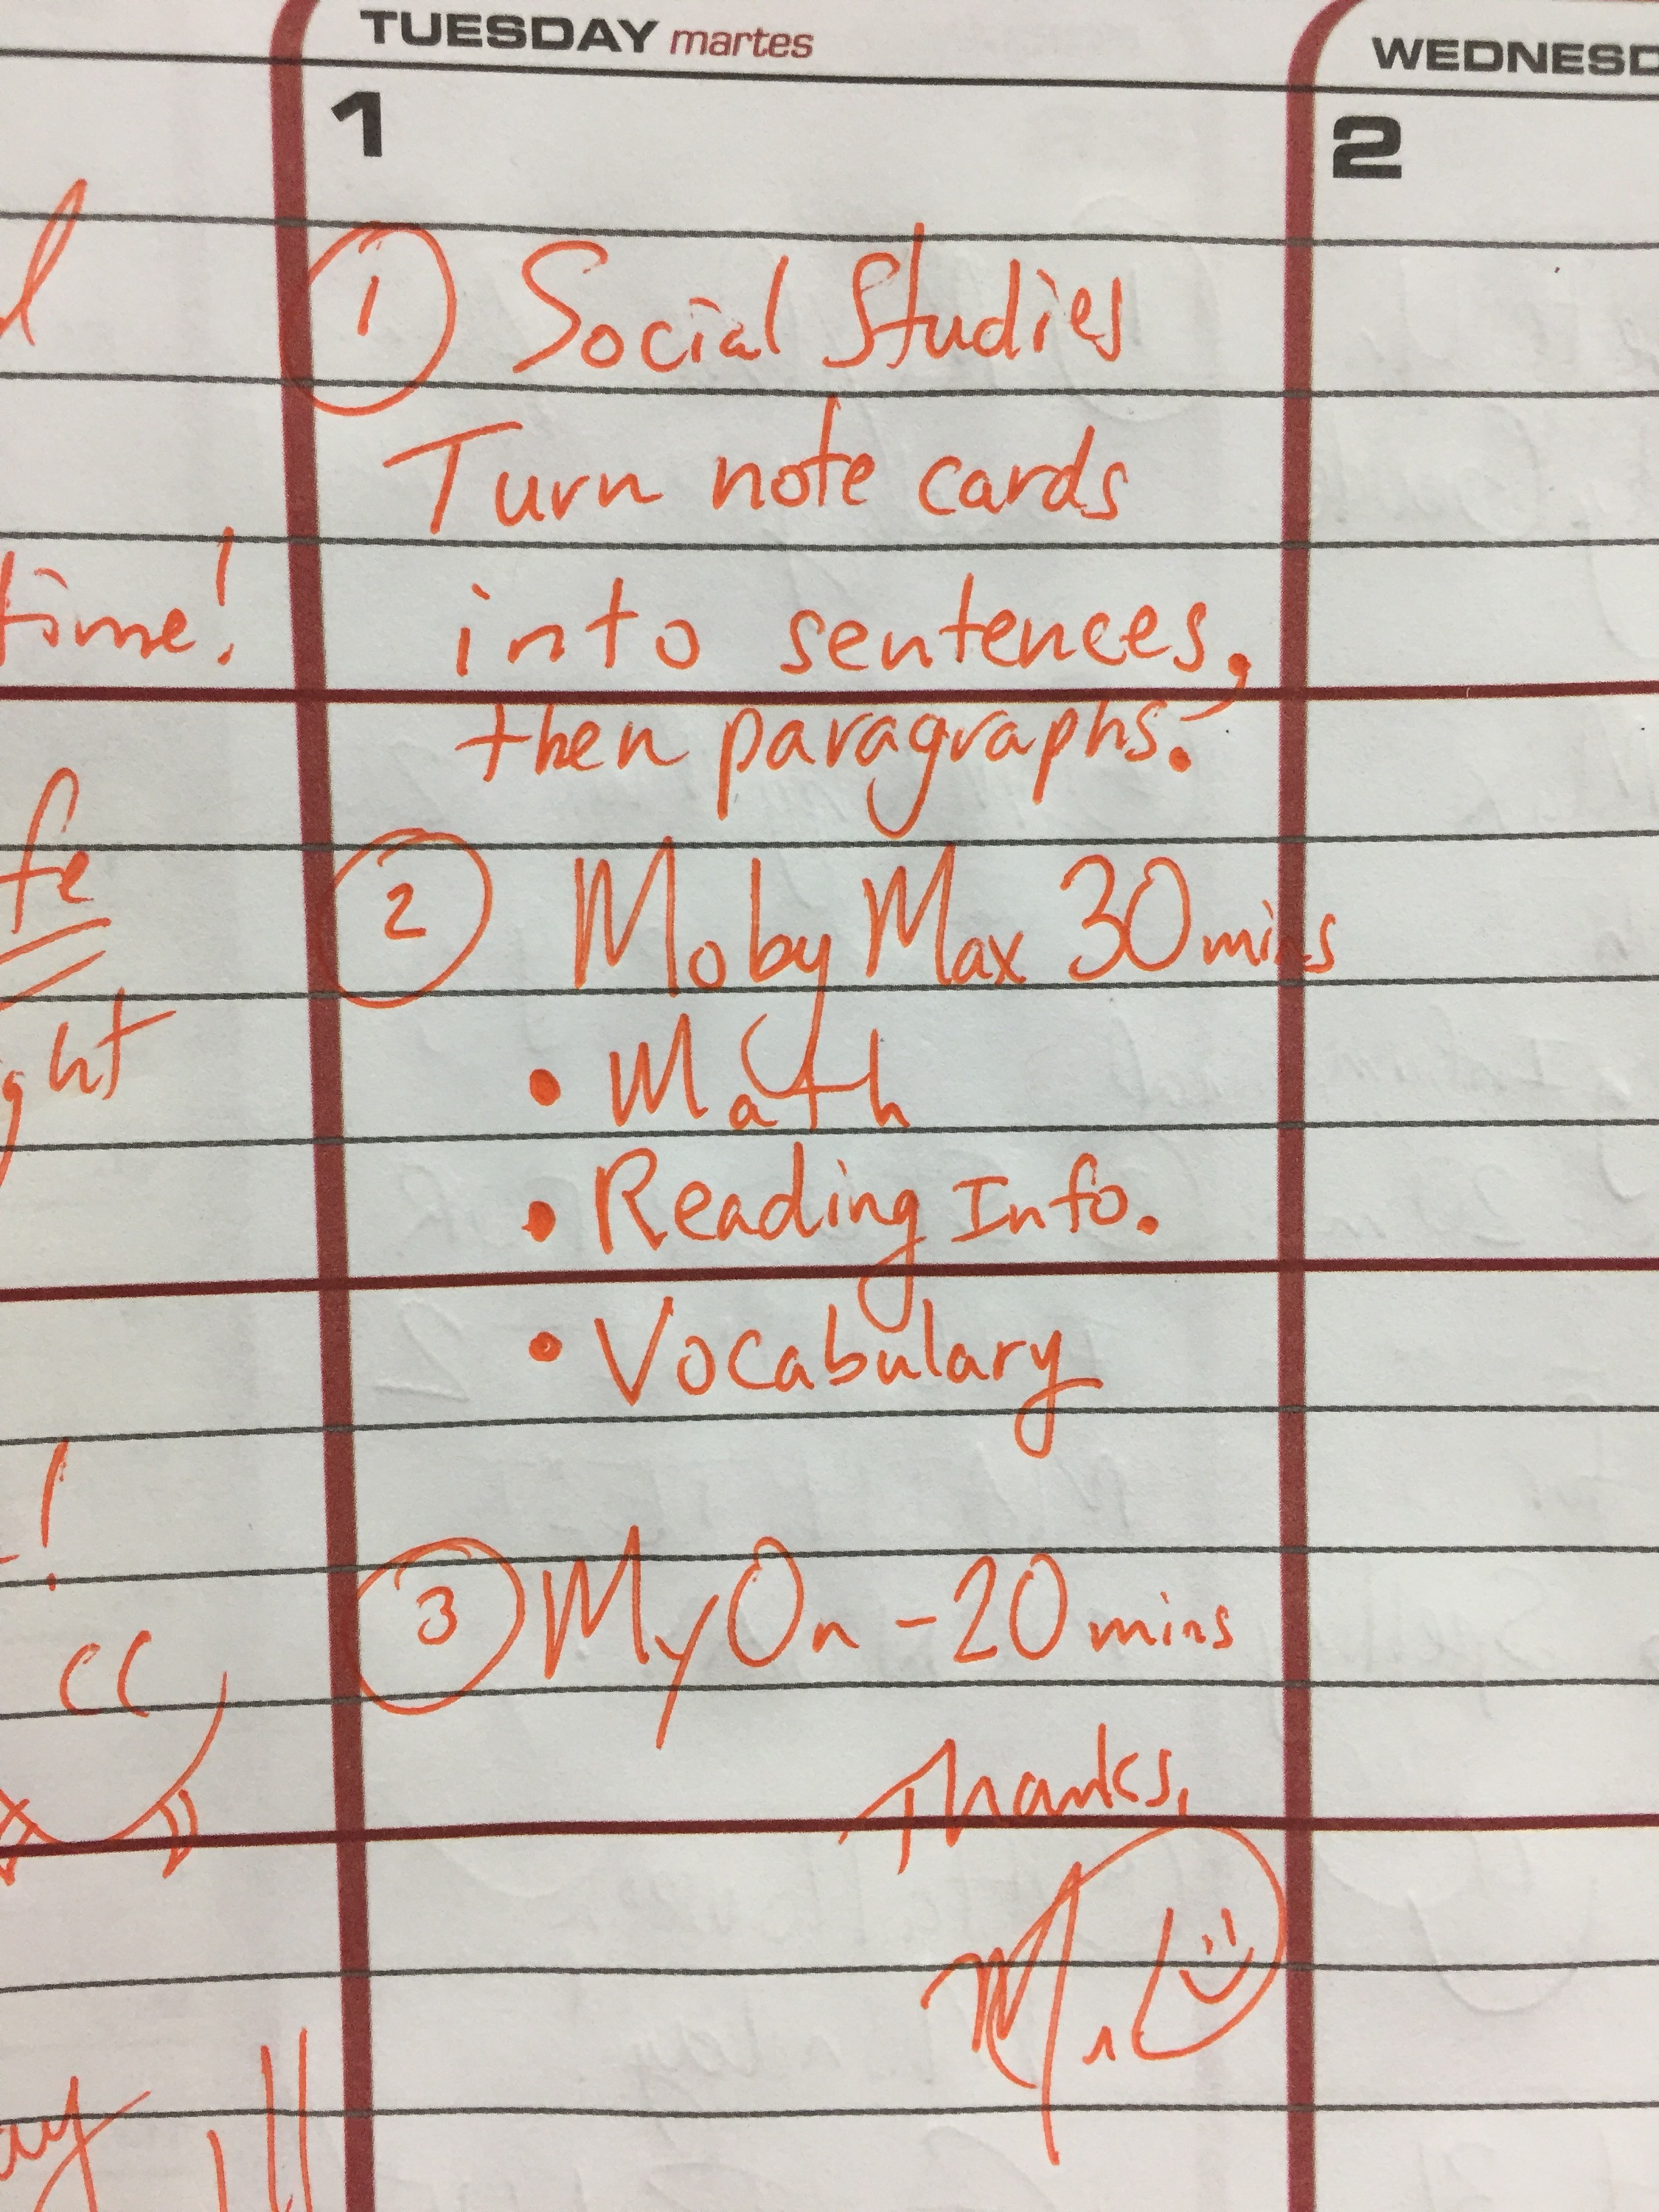 TUESDAY martes
WEDNESD
1
2
1 Social Studies
Turn note cards
into sentences,
time!
then paragraphs.
fe
2 Moby Max 30 mins
ght
• Math
• Reading Info.
• Vocabulary
!
3 MyOn - 20 mins
Thanks,
Mr.
ay !!